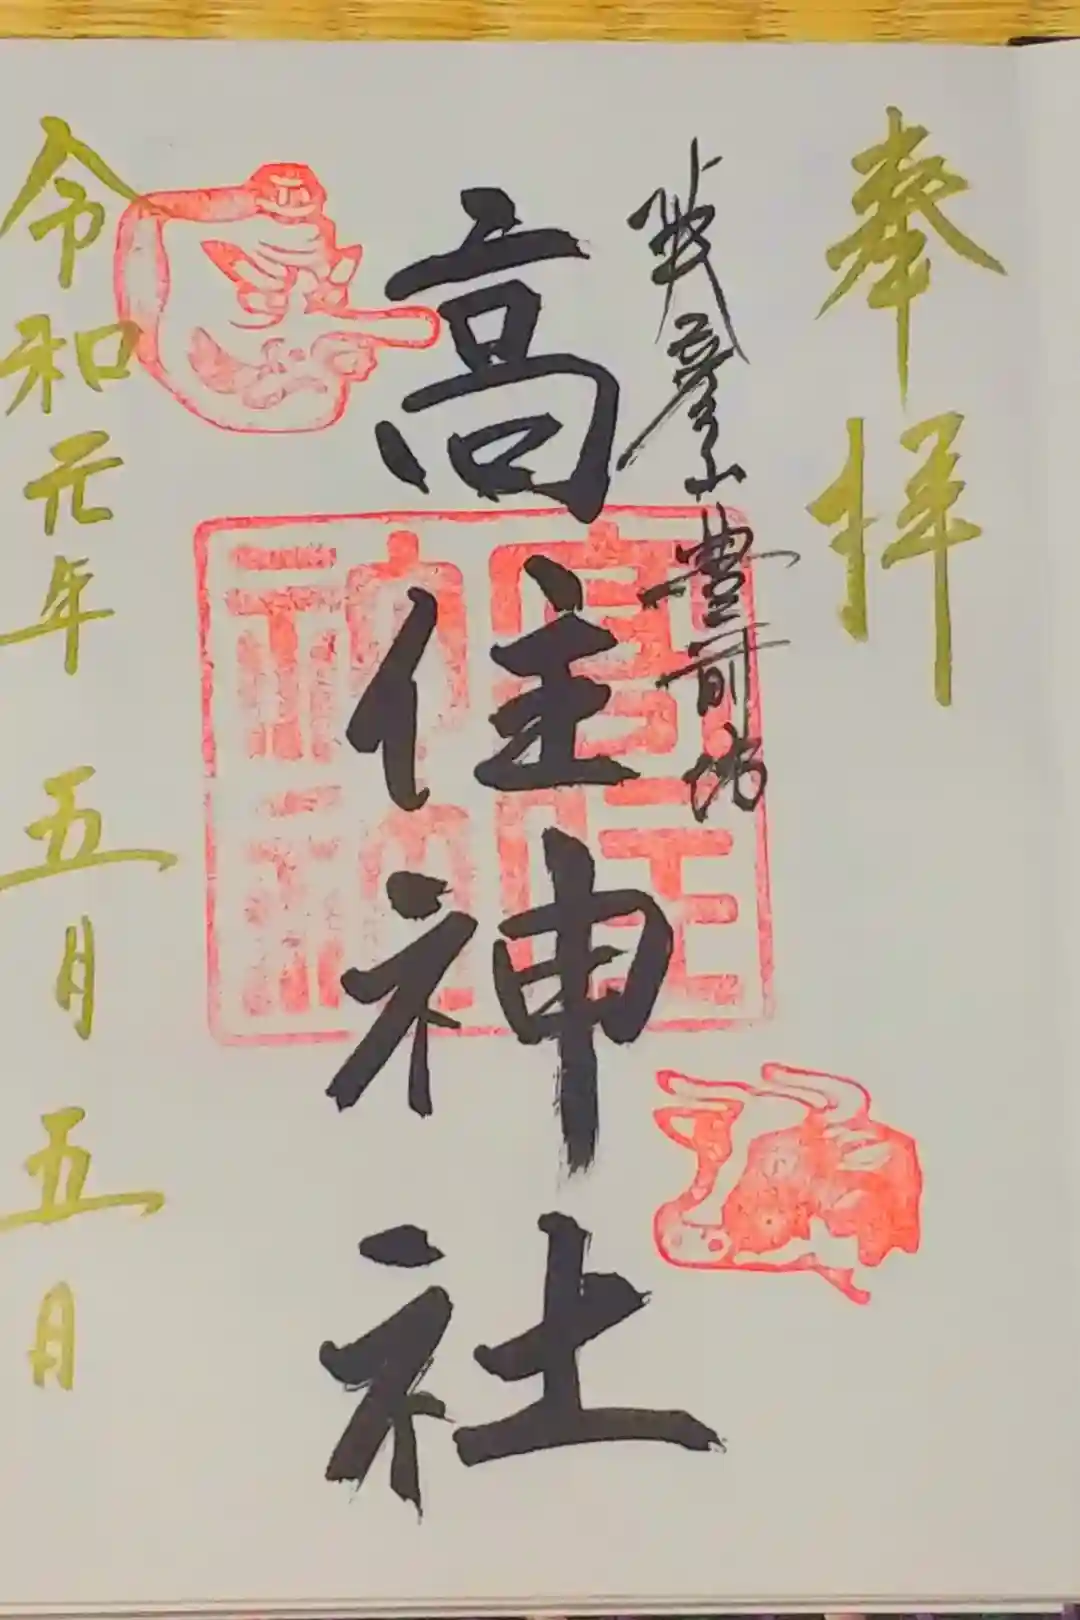 奉拝
英彦山豊前坊
高住神社
令和元年五月五日
高住
神社